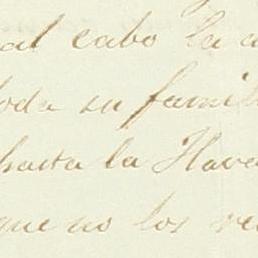 al cabo la
toda su famil
hasta la Hava
que no los ve